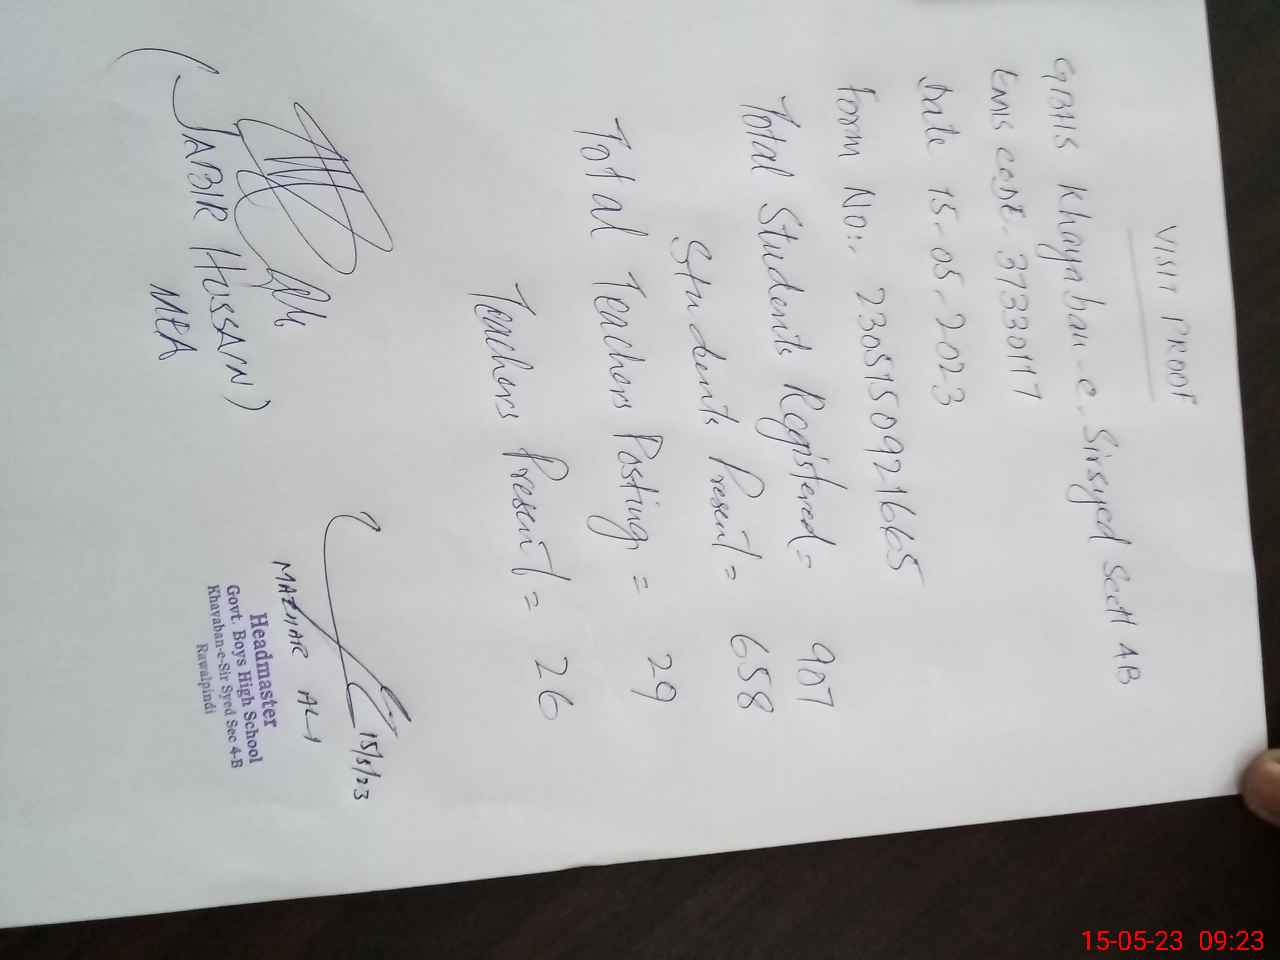 VISIT PROOF
GBHS Khayaban-e-Sirsyed Sect 4B
EMIS CODE- 37330117
Date 15-05-2023
Form No:- 23051509216665
Total Students Registered= 907
Students Present= 658
Total Teachers Posting = 29
Teachers Present = 26
(JABIR HUSSAIN)
MEA
15/5/23
MAZHAR ALI
Headmaster
Govt. Boys High School
Khayaban-e-Sir Syed Sec 4-B
Rawalpindi
15-05-23 09:23